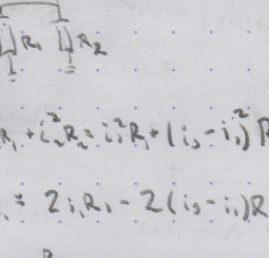 R₁ R₂
R₁ + i₂²R₂ = i₁²R₁ + (i₃ - i₁)²R
= 2i₁R₁ - 2(i₃ - i₁)R